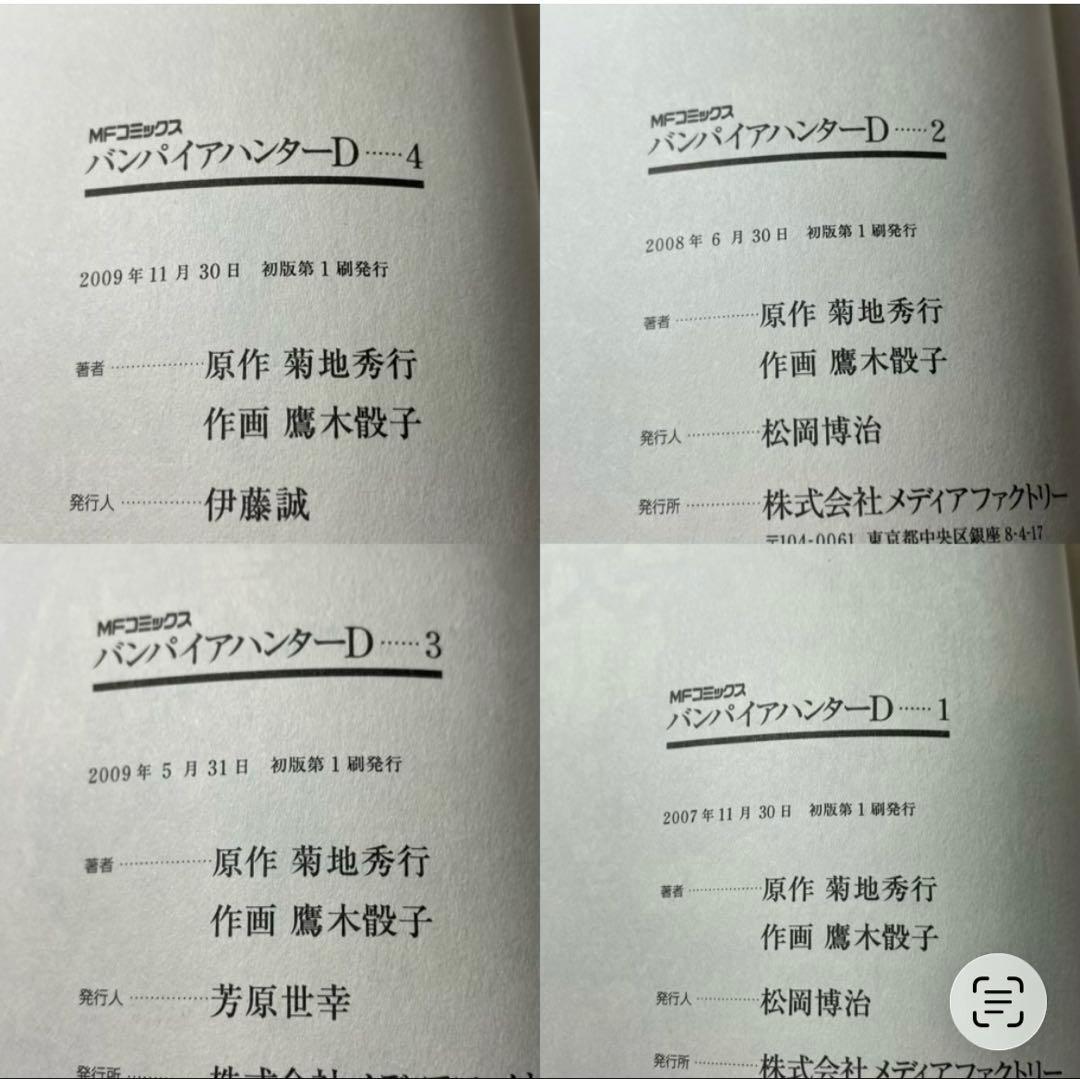 MFコミックス
バンパイアハンターD……4
2009年11月30日 初版第1刷発行
著者…………原作 菊地秀行
作画 鷹木骰子
発行人…………伊藤誠
MFコミックス
バンパイアハンターD……2
2008年6月30日 初版第1刷発行
著者…………原作 菊地秀行
作画 鷹木骰子
発行人…………松岡博治
発行所…………株式会社メディアファクトリー
〒104-0061 東京都中央区銀座8-4-17
MFコミックス
バンパイアハンターD……3
2009年5月31日 初版第1刷発行
著者…………原作 菊地秀行
作画 鷹木骰子
発行人…………芳原世幸
発行所…………
MFコミックス
バンパイアハンターD……1
2007年11月30日 初版第1刷発行
著者…………原作 菊地秀行
作画 鷹木骰子
発行人…………松岡博治
発行所…………株式会社メディアファクトリー